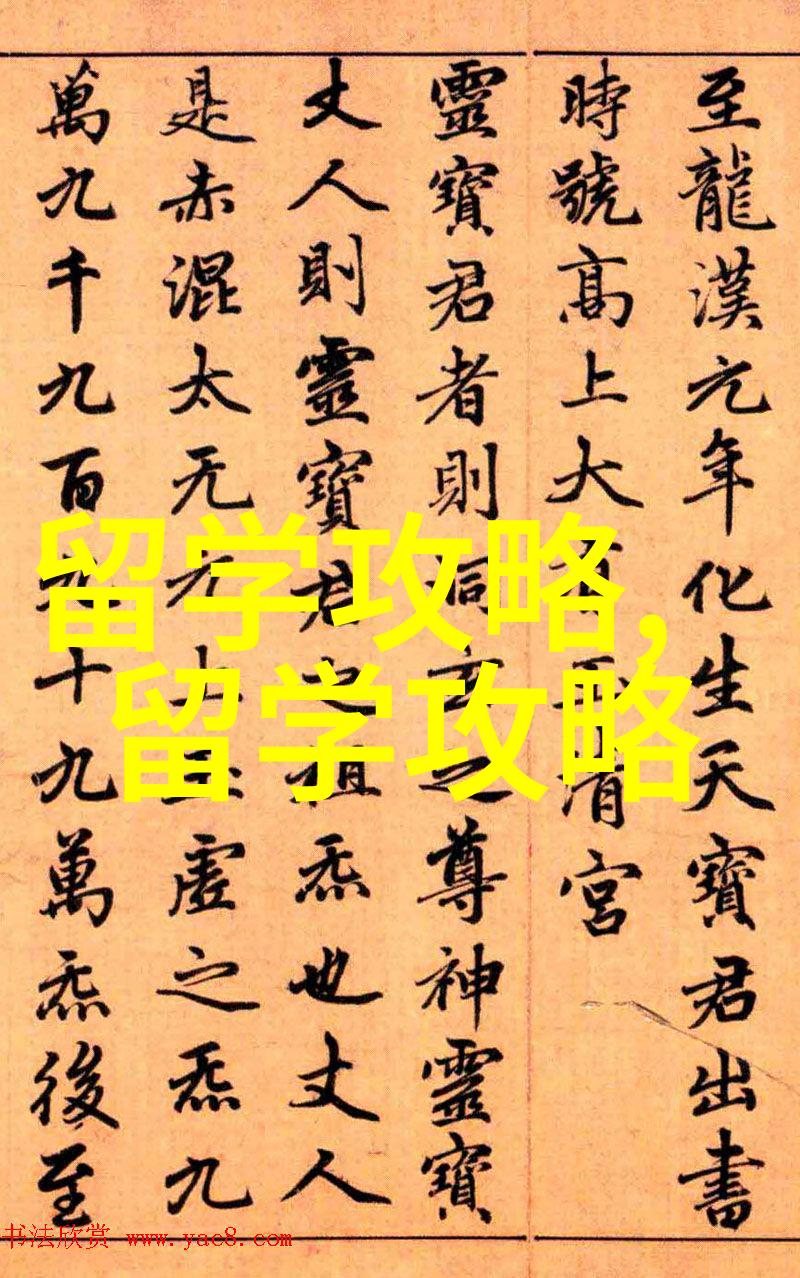 至龍漢元年化生天寶君出書
時號高上大有玉清宮
靈寶君者則洞玄之尊神靈寶
丈人則靈寶君之祖炁也丈人
是赤混太无元上玉虛之炁九
萬九千九百九十九萬炁後至
留学攻略,
留学攻略
书法欣赏 www.yac8.com